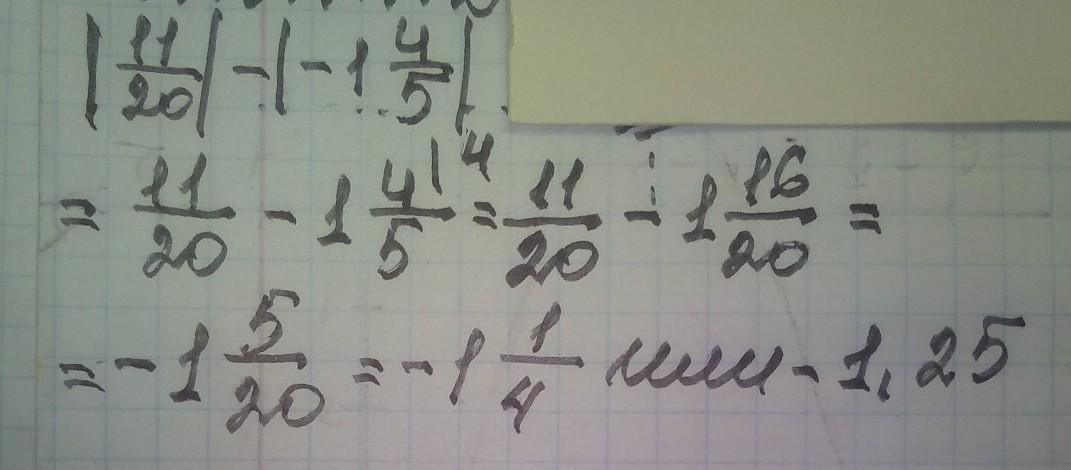 |11/20| - |-1 4/5|
= 11/20 - 1 4/5 |4 = 11/20 - 1 16/20 =
= -1 5/20 = -1 1/4 или -1,25